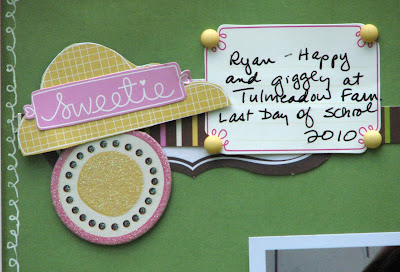 sweetie
Ryan - Happy
and giggly at
Tulmeadow Farm.
Last Day of school
2010